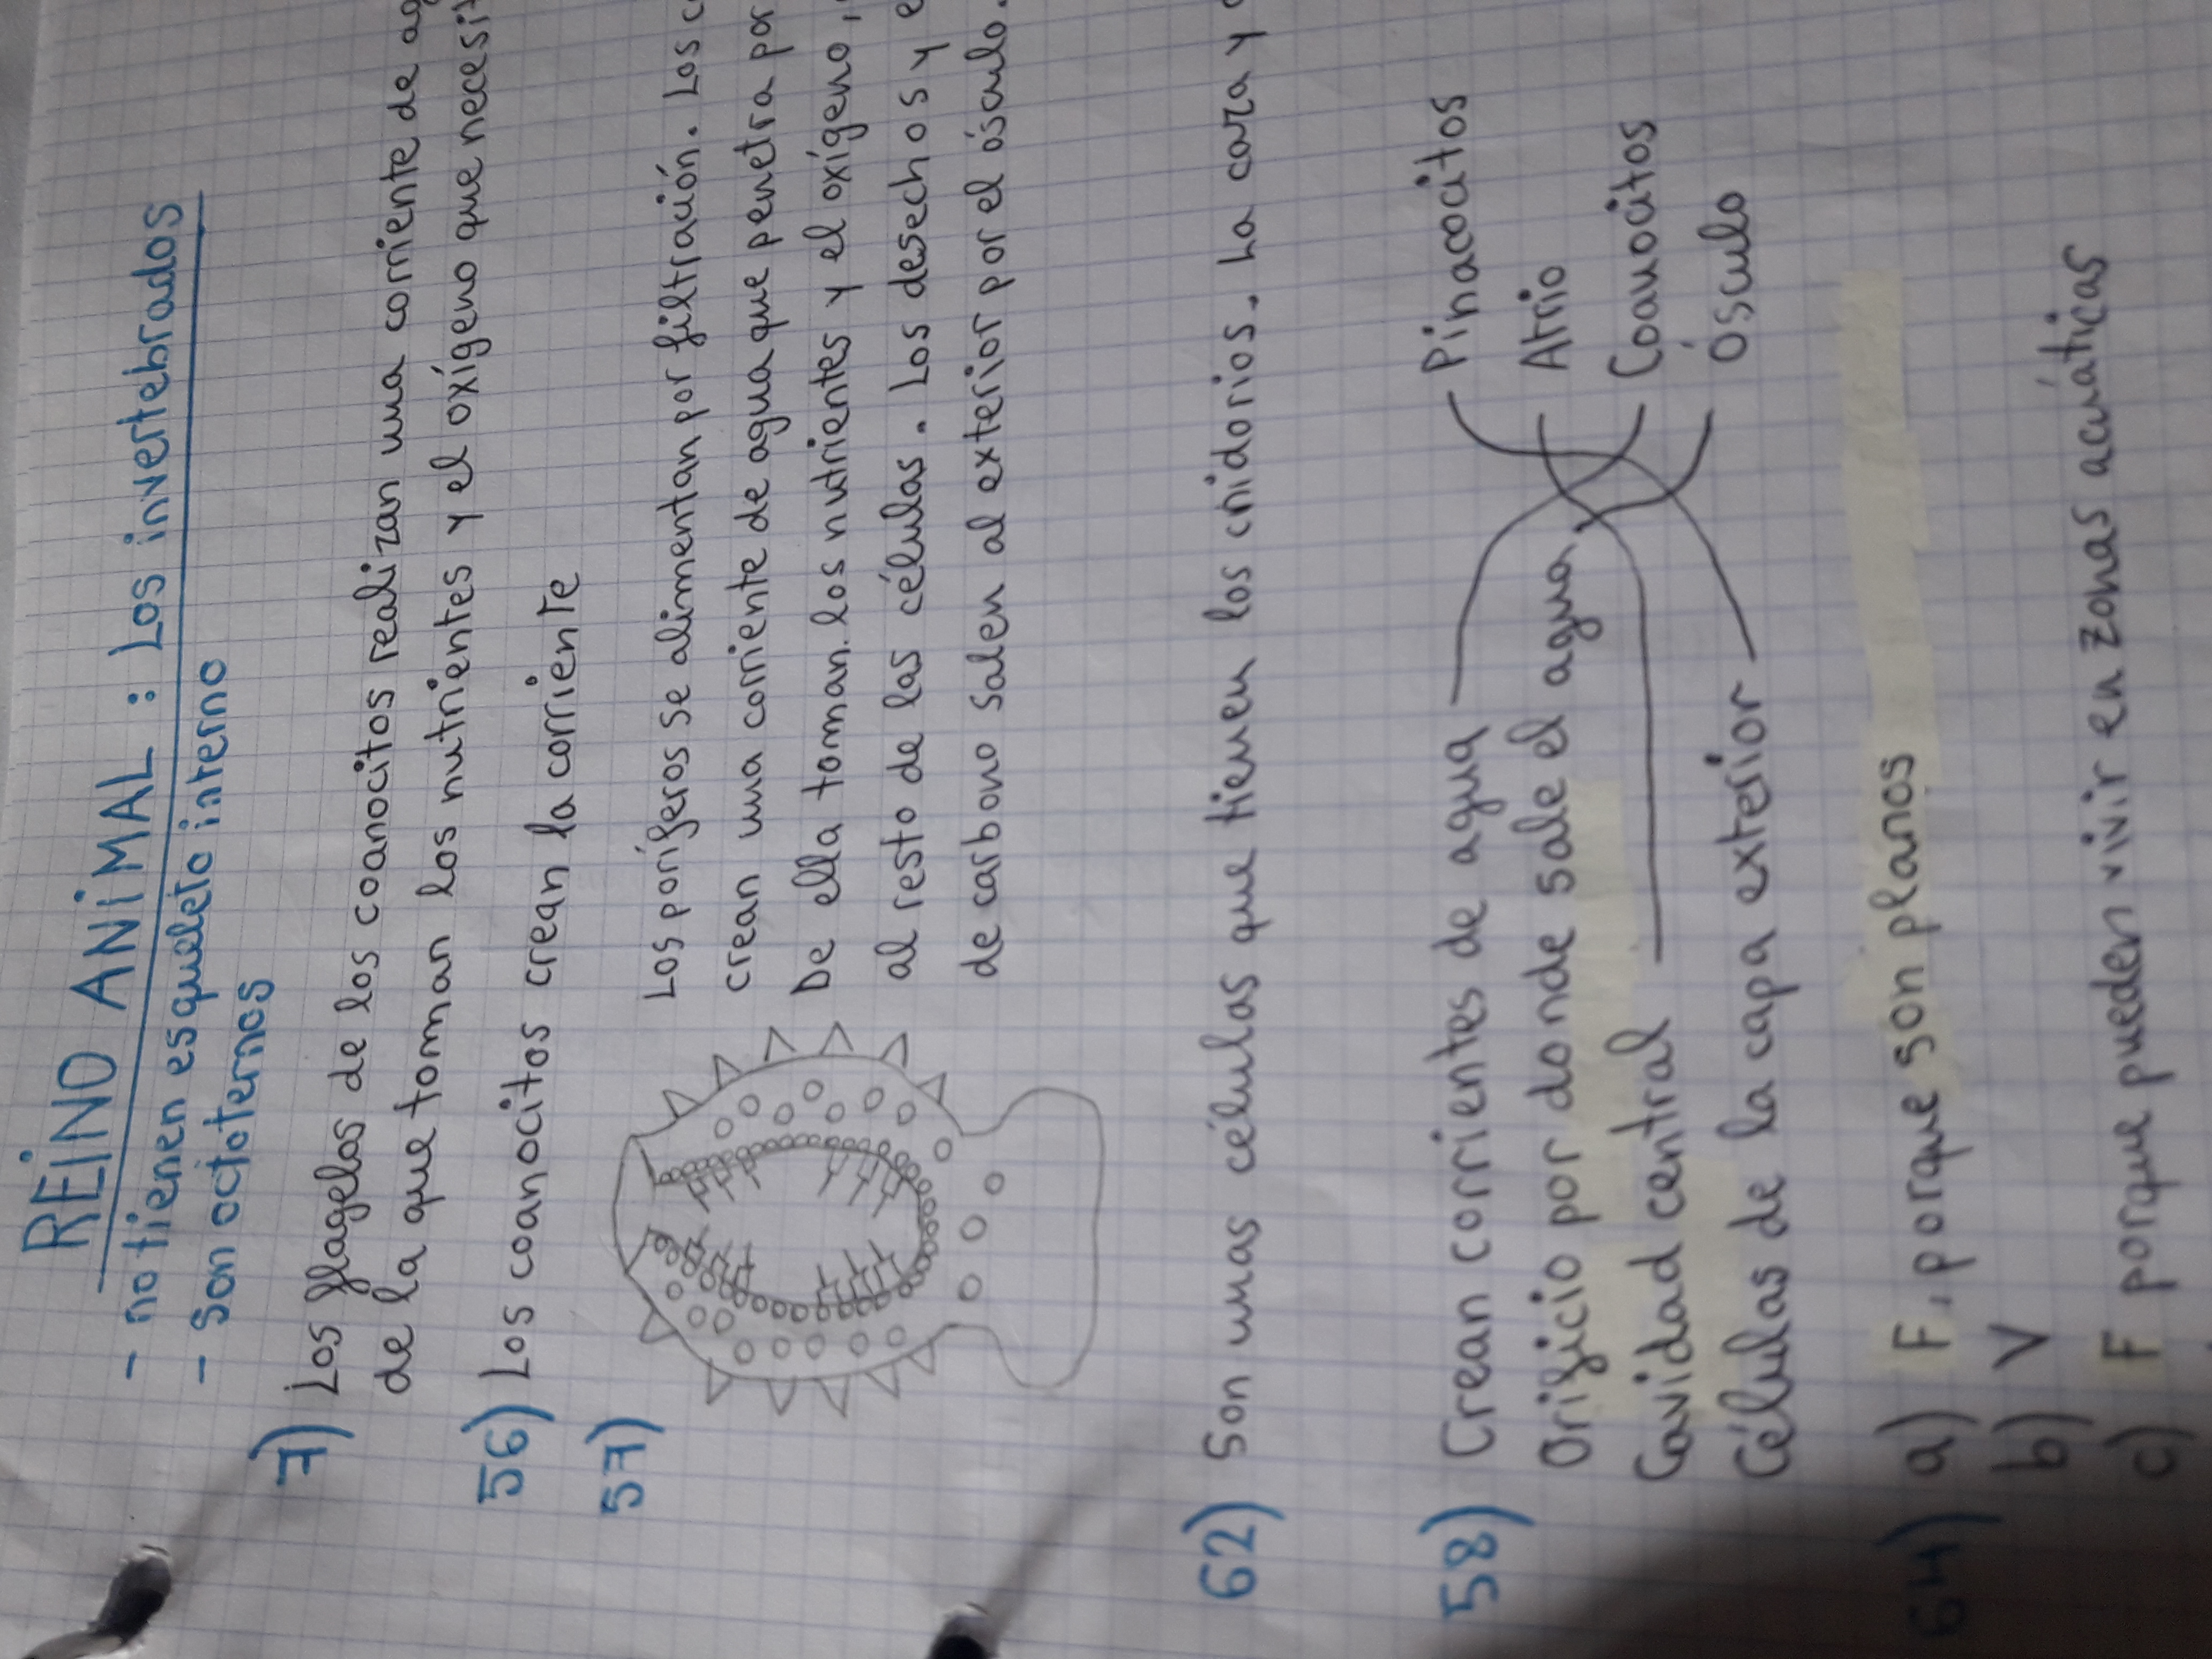 REINO ANIMAL: Los invertebrados
- no tienen esqueleto interno
- son octoternos
7) Los flagelos de los coanocitos realizan una corriente de ag
de la que toman los nutrientes y el oxígeno que necesit
56) Los coanocitos crean la corriente
57) Los poríferos se alimentan por filtración. Los c
crean una corriente de agua que penetra por
De ella toman. los nutrientes y el oxígeno,
al resto de las células. Los desechos y e
de carbono salen al exterior por el ósculo.
62) Son unas células que tienen los cnidorios. La cara y
58) Crean corrientes de agua Pinacocitos
Orificio por donde sale el agua Atrio
Cavidad central Coanocitos
Células de la capa exterior Ósculo
64) a) F, porque son planos
b) V
c) F porque pueden vivir en zonas acuáticas